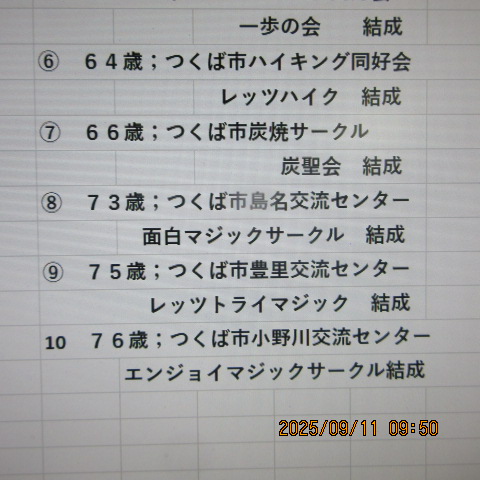 一歩の会　結成
⑥　６４歳；つくば市ハイキング同好会
レッツハイク　結成
⑦　６６歳；つくば市炭焼サークル
炭聖会　結成
⑧　７３歳；つくば市島名交流センター
面白マジックサークル　結成
⑨　７５歳；つくば市豊里交流センター
レッツトライマジック　結成
10　７６歳；つくば市小野川交流センター
エンジョイマジックサークル結成
2025/09/11 09:50